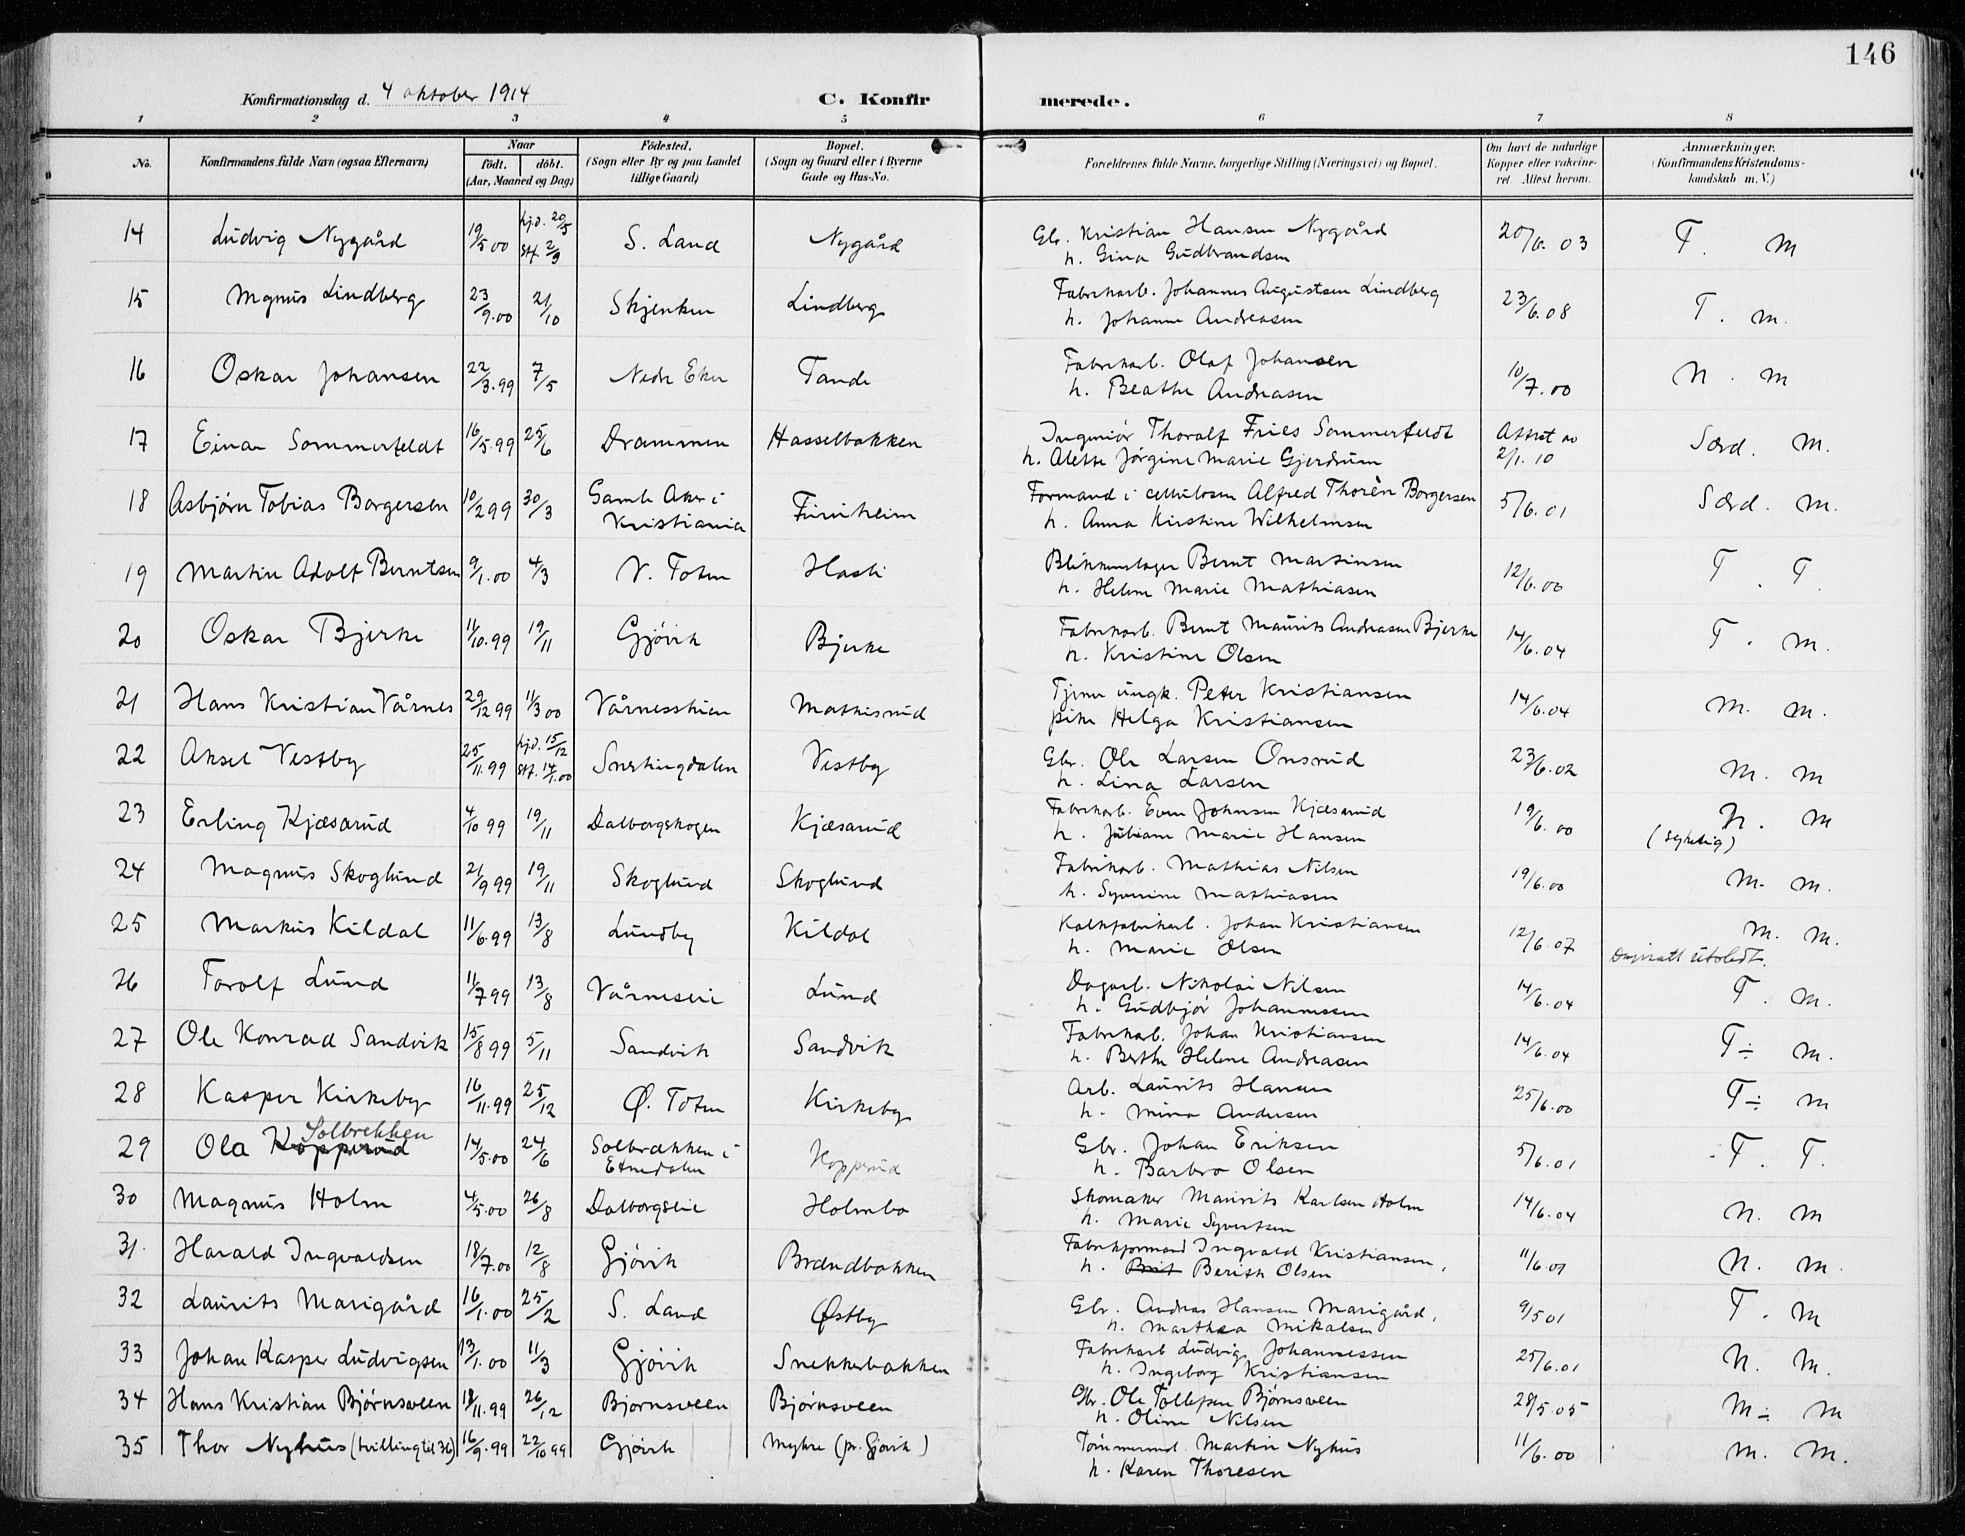 146
Konfirmationsdag d. 4 oktober 1914 C. Konfirmerede.
1 2 3 4 5 6 7 8
No. Konfirmandens fulde Navn (ogsaa Efternavn) Naar født. døbt. (Aar, Maaned og Dag) Fødested. (Sogn eller By og paa Landet tillige Gaard) Bopæl. (Sogn og Gaard eller i Byerne Gade og Hus-No. Forældrenes fulde Navne, borgerlige Stilling (Næringsvei) og Bopæl. Om havt de naturlige Kopper eller vakcineret. Attest herom. Anmærkninger. (Konfirmandens Kristendomskundskab m. V.)
14 Ludvig Nygård 19/5 00 hjd. 20/5 Stf. 2/9 S. Land Nygård Gbr. Kristian Hansen Nygård 20/6. 03 T. M
h. Gina Gudbrandsen
15 Magnus Lindberg 23/9.00 21/10 Skjenken Lindberg Fabrikarb. Johannes Augustsen Lindberg 23/6.08 T. m.
h. Johanne Andreasen
16 Oskar Johansen 22/3.99 7/5 Nedre Eker Tande Fabrikarb. Olaf Johansen 10/7.00 N. m
h. Beathe Andreasen
17 Einar Sommerfeldt 16/5.99 25/6 Drammen Hasselbakken Ingeniør Thoralf Fries Sommerfeldt Attest av 2/1. 10 Særd. M.
h. Alette Jørgine Marie Gjerdrum
18 Asbjørn Tobias Borgersen 10/2 99 30/3 Gamle Aker i Kristiania Furuheim Formand i cellulosen Alfred Thorèn Borgersen 5/6.01 Særd. M.
h. Anna Kirstine Wilhelmsen
19 Martin Adolf Berntsen 9/1.00 4/3 V. Toten Hasli Blikkenslager Bernt Martinsen 12/6.00 T. T
h. Helene Marie Mathiasen
20 Oskar Bjerke 11/10.99 19/11 Gjøvik Bjerke Fabrikarb. Bernt Maurits Andreasen Bjerke 14/6.04 T. m.
h. Kristine Olsen
21 Hans Kristian Vårnes 29/12 99 11/3 00 Vårnesskien Mathisrud Tjener ungk. Peter Kristiansen 14/6.04 M. m.
pike Helga Kristiansen
22 Aksel Vestby 25/11.99 hjd. 15/12 Stf. 14/1.00 Snertingdalen Vestby Gbr. Ole Larsen Onsrud 23/6.02 M. M
h. Lina Larsen
23 Erling Kjæsarud 4/10 99 19/11 Dalborgskogen Kjæsarud Fabrikarb. Even Johnsen Kjæsarud 19/6.00 N. M
h. Juliane Marie Hansen (sykelig)
24 Magnus Skoglund 21/9 99 19/11 Skoglund Skoglund Fabrikarb. Mathias Nilsen 19/6.00 M. M.
h. Syverine Mathiasen
25 Markus Kildal 11/6.99 13/8 Lundby Kildal Kalkfabrikarb. Johan Kristiansen 12/6.07 M. M.
h. Marie Olsen Dåpsatt utstedt.
26 Torolf Lund 11/7 99 13/8 Vårneseie Lund Dagarb. Nikolai Nilsen 14/6.04 T. M.
h. Gudbjør Johannessen
27 Ole Konrad Sandvik 15/8 99 5/11 Sandvik Sandvik Fabrikarb. Johan Kristiansen 14/6.04 T÷ M.
h. Berthe Helene Andreasen
28 Kasper Kirkeby 16/11.99 25/12 Ø. Toten Kirkeby Arb. Laurits Hansen 25/6.00 T÷ M
h. Mina Andersen
29 Ola Kopperud Solbrekken 14/5.00 24/6 Solbrækken i Etnedalen Kopperud Gbr. Johan Eriksen 5/6.01 T. T.
h. Barbro Olsen
30 Magnus Holm 4/5.00 26/8 Dalborgseie Holmbo Skomaker Maurits Karlsen Holm 14/6.04 N. M
h. Marie Syvertsen
31 Harald Ingvaldsen 18/7.00 12/8 Gjøvik Brændbakken Fabrikformand Ingvald Kristiansen, 11/6.01 N. M.
h. Brit Berith Olsen
32 Laurits Marigård 16/1.00 25/2 S. Land Østby Gbr. Andreas Hansen Marigård, 9/5 01 T. M
h. Marthea Mikalsen
33 Johan Kasper Ludvigsen 13/1.00 11/3 Gjøvik Snekkerbakken Fabrikarb Ludvig Johannessen 25/6.01 N. M.
h. Ingeborg Kristiansen
34 Hans Kristian Bjørnsveen 18/11.99 26/12 Bjørnsveen Bjørnsveen Gbr. Ole Tollefsen Bjørnsveen 28/5.05 M÷ M
h. Oline Nilsen
35 Thor Nyhus (tvilling til 36) 16/9.99 22/10 99 Gjøvik Myhre (pr. Gjøvik) Tømmermd. Martin Nyhus 11/6.00 M. M.
h. Karen Thoresen